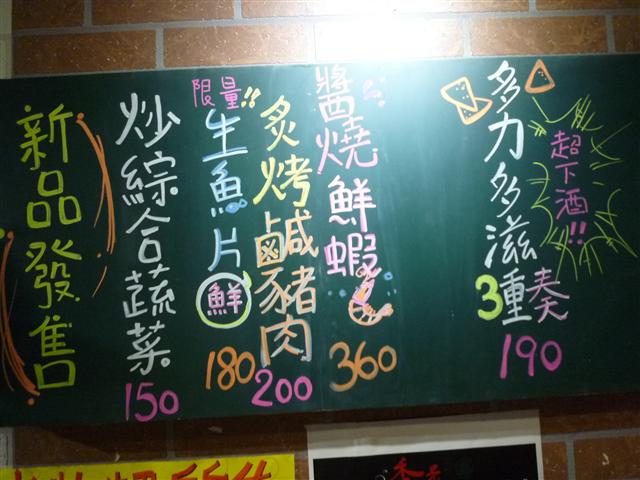 超下酒!!
多力多滋
3重奏
190
醬燒鮮蝦
360
炙烤鹹豬肉
200
限量!!
生魚片
鮮
180
炒綜合蔬菜
150
新品發售